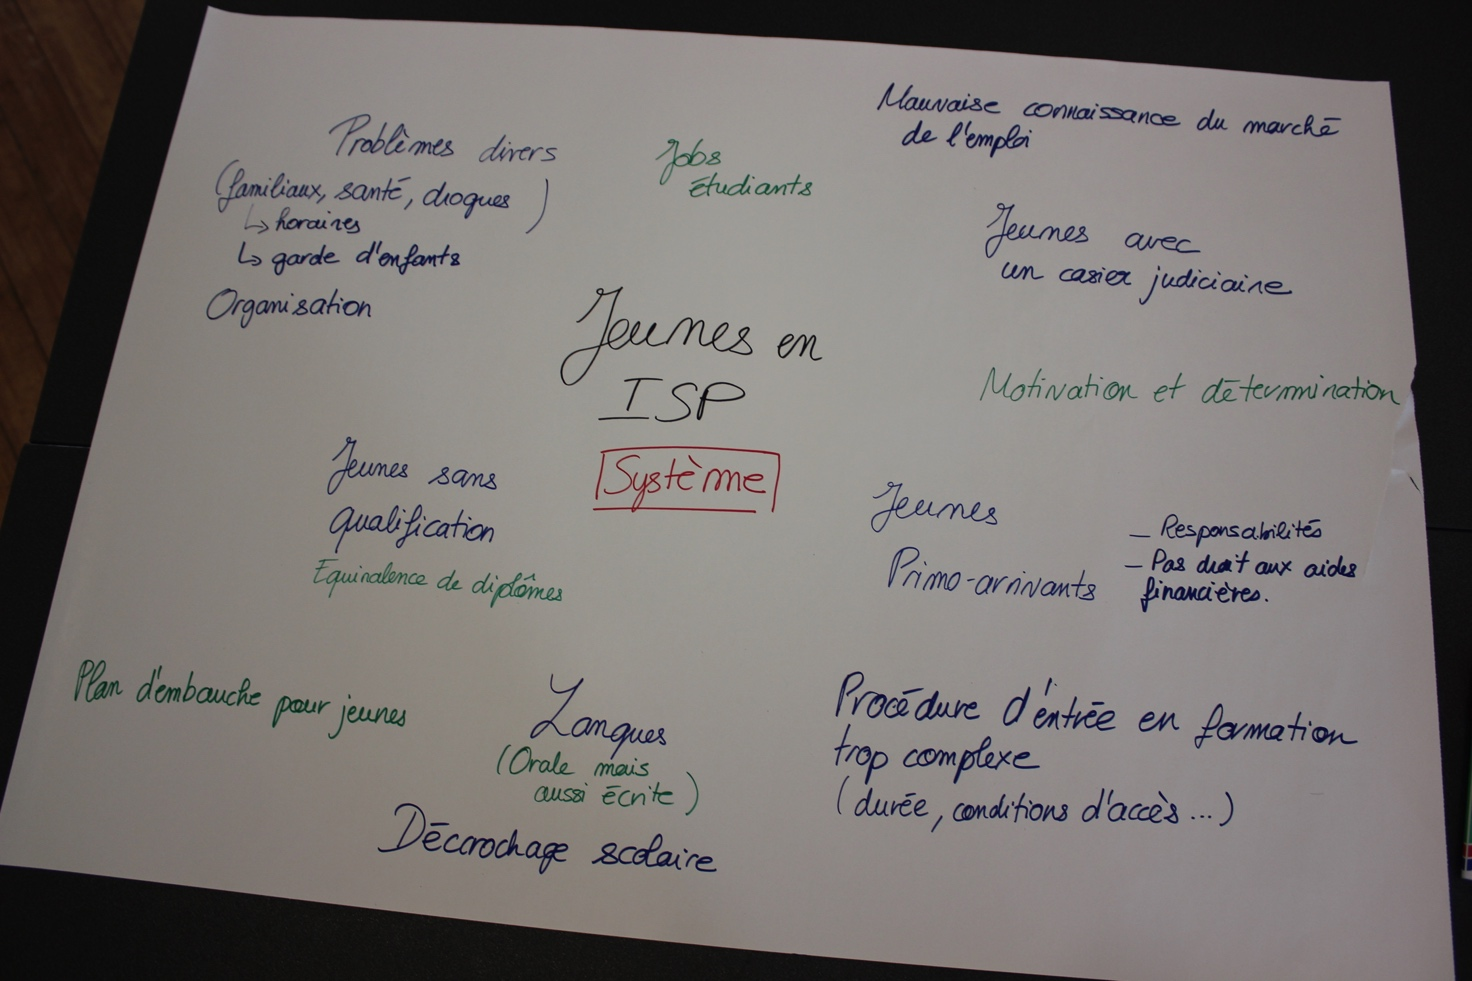 Problèmes divers
(familiaux, santé, drogues)
↳ horaires
↳ garde d'enfants
Organisation
Jobs
étudiants
Mauvaise connaissance du marché
de l'emploi
Jeunes avec
un casier judiciaire
Jeunes en
ISP
Système
Motivation et détermination
Jeunes sans
qualification
Equivalence de diplômes
Jeunes
Primo-arrivants
— Responsabilités
— Pas droit aux aides
financières.
Plan d'embauche pour jeunes
Langues
(Orale mais
aussi écrite)
Décrochage scolaire
Procédure d'entrée en formation
trop complexe
(durée, conditions d'accès...)